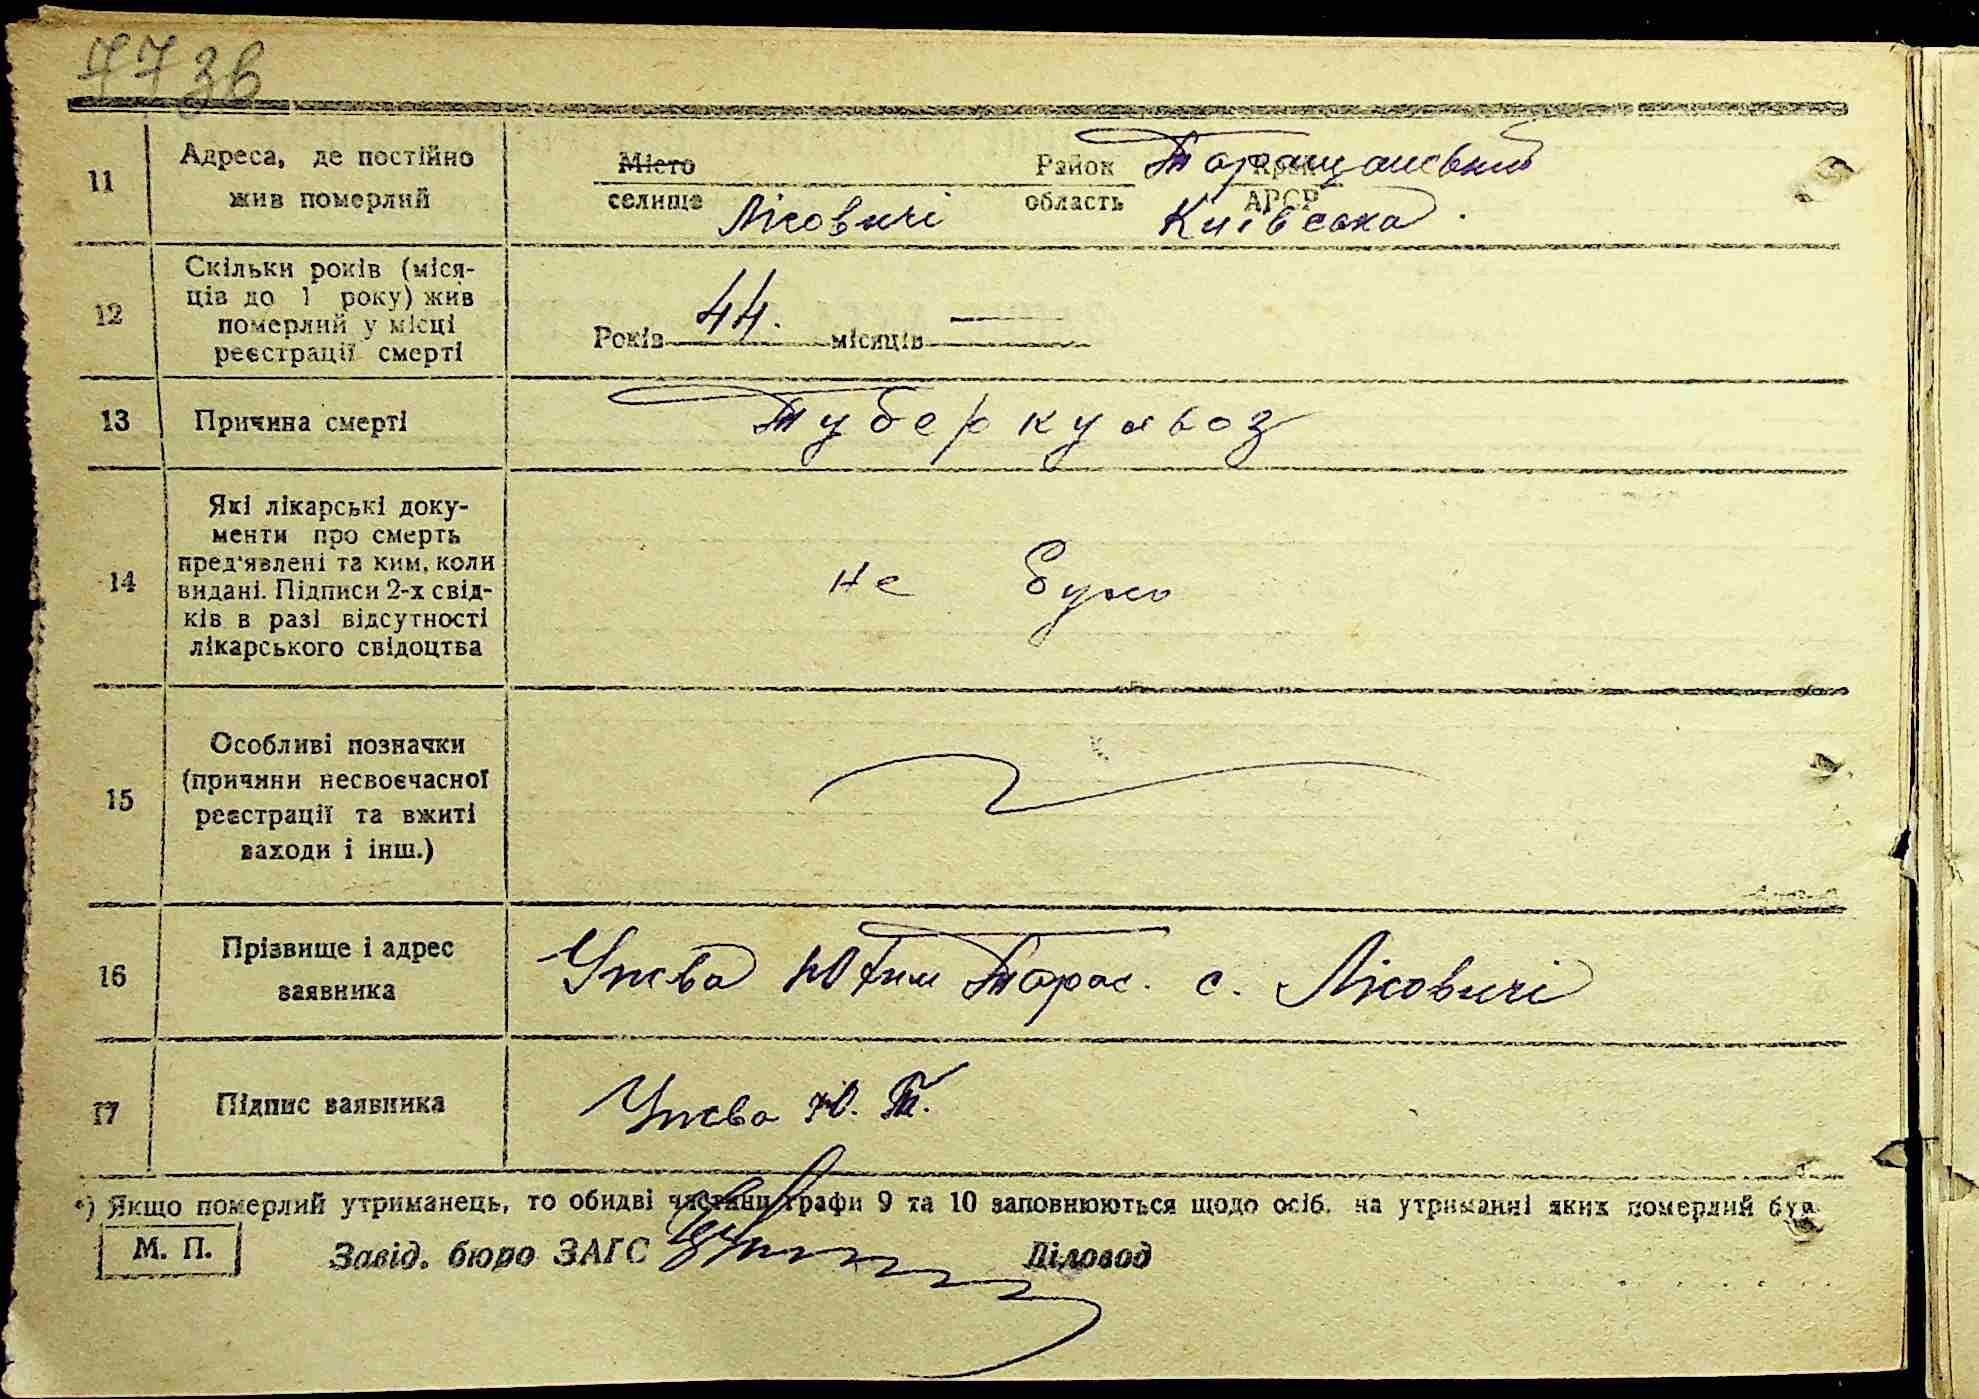 7736
11
Адреса, де постійно
жив померлий
Місто
селище
Лісовичі
Район
область
Таращанський
Київська
АРСР
12
Скільки років (міся-
ців до 1 року) жив
померлий у місці
реєстрації смерті
Років 44. місяців —
13
Причина смерті
Туберкульоз
14
Які лікарські доку-
менти про смерть
пред'явлені та ким, коли
видані. Підписи 2-х свід-
ків в разі відсутності
лікарського свідоцтва
не було
15
Особливі позначки
(причини несвоєчасної
реєстрації та вжиті
заходи і інш.)
16
Прізвище і адрес
заявника
Юхим Тарас. с. Лісовичі
17
Підпис заявника
Ю. Т.
*) Якщо померлий утриманець, то обидві частини графи 9 та 10 заповнюються щодо осіб, на утриманні яких померлий був
М. П.
Завід. бюро ЗАГС
Діловод